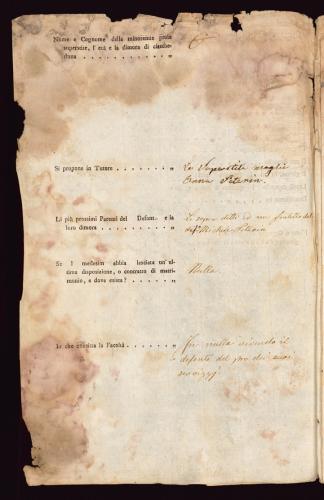 Nome e Cognome della minorenne prole
superstite, l'età e la dimora di ciascheduna . . . . . . . . . . . „
Si propone in Tutore . . . . . . . . „ La Superstite moglie
Anna
Li più prossimi Parenti del Defunto e la
loro dimora . . . . . . . . . . . „ ed un fratello del
Michele
Se i medesimi abbia lasciata un' ul-
tima disposizione, o contratto di matri-
monio, e dove esista? . . . . . . . „ Nulla
In che consista la Facoltà . . . . . . . „ In nulla vivendo il
defunto del pro dei suoi